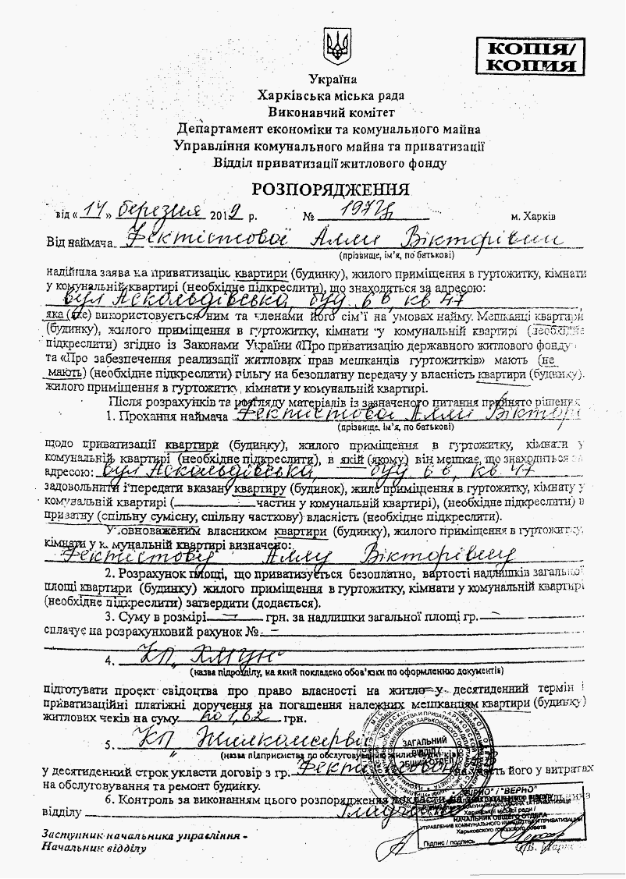 КОПІЯ/
КОПИЯ
Україна
Харківська міська рада
Виконавчий комітет
Департамент економіки та комунального майна
Управління комунального майна та приватизації
Відділ приватизації житлового фонду
РОЗПОРЯДЖЕННЯ
від «14» березня 2012 р. № м. Харків
Від наймача Фектістової Алли Вікторівни
(прізвище, ім'я, по батькові)
надійшла заява на приватизацію квартири (будинку), жилого приміщення в гуртожитку, кімнати
у комунальній квартирі (необхідне підкреслити), що знаходиться за адресою:
вул Аскольдівська, буд 6 в кв 47
яка (яке) використовується ним та членами його сім'ї на умовах найму. Мешканці квартири
(будинку), жилого приміщення в гуртожитку, кімнати у комунальній квартирі (необхідне
підкреслити) згідно із Законами України «Про приватизацію державного житлового фонду»
та «Про забезпечення реалізації житлових прав мешканців гуртожитків» мають (не
мають) (необхідне підкреслити) пільгу на безоплатну передачу у власність квартири (будинку),
жилого приміщення в гуртожитку, кімнати у комунальній квартирі.
Після розрахунків та розгляду матеріалів із зазначеного питання прийнято рішення
1. Прохання наймача Фектістової Алли Вікторі
(прізвище, ім'я, по батькові)
щодо приватизації квартири (будинку), жилого приміщення в гуртожитку, кімнати у
комунальній квартирі (необхідне підкреслити), в якій (якому) він мешкає, що знаходиться за
адресою: вул Аскольдівська, буд 6 в, кв 47
задовольнити і передати вказану квартиру (будинок), жиле приміщення в гуртожитку, кімнату у
комунальній квартирі ( частин у комунальній квартирі), (необхідне підкреслити) в
приватну (спільну сумісну, спільну часткову) власність (необхідне підкреслити).
Уповноваженим власником квартири (будинку), жилого приміщення в гуртожитку,
кімнати у комунальній квартирі визначено:
Фектістову Аллу Вікторівну
2. Розрахунок площі, що приватизується безоплатно, вартості надлишків загальної
площі квартири (будинку) жилого приміщення в гуртожитку, кімнати у комунальній квартирі
(необхідне підкреслити) затвердити (додається).
3. Суму в розмірі — грн. за надлишки загальної площі гр. —
сплачує на розрахунковий рахунок № —
4. КП
(назва підрозділу, на який покладено обов'язки по оформленню документів)
підготувати проект свідоцтва про право власності на житло у десятиденний термін і
приватизаційні платіжні доручення на погашення належних мешканцям квартири (будинку)
житлових чеків на суму по 1,62 грн.
5. КП Жилкомсервіс
(назва підприємства по обслуговуванню жилих будинків)
у десятиденний строк укласти договір з гр. на участь його у витратах
на обслуговування та ремонт будинку.
6. Контроль за виконанням цього розпорядження покласти на
відділу
ЗАГАЛЬНИЙ
ВІДДІЛ /
ОБЩИЙ ОТДЕЛ
"ВІРНО" / "ВЕРНО"
НАЧАЛЬНИК ОБЩЕГО ОТДЕЛА
Харьковского городского совета
Підпис / подпись
Заступник начальника управління -
Начальник відділу